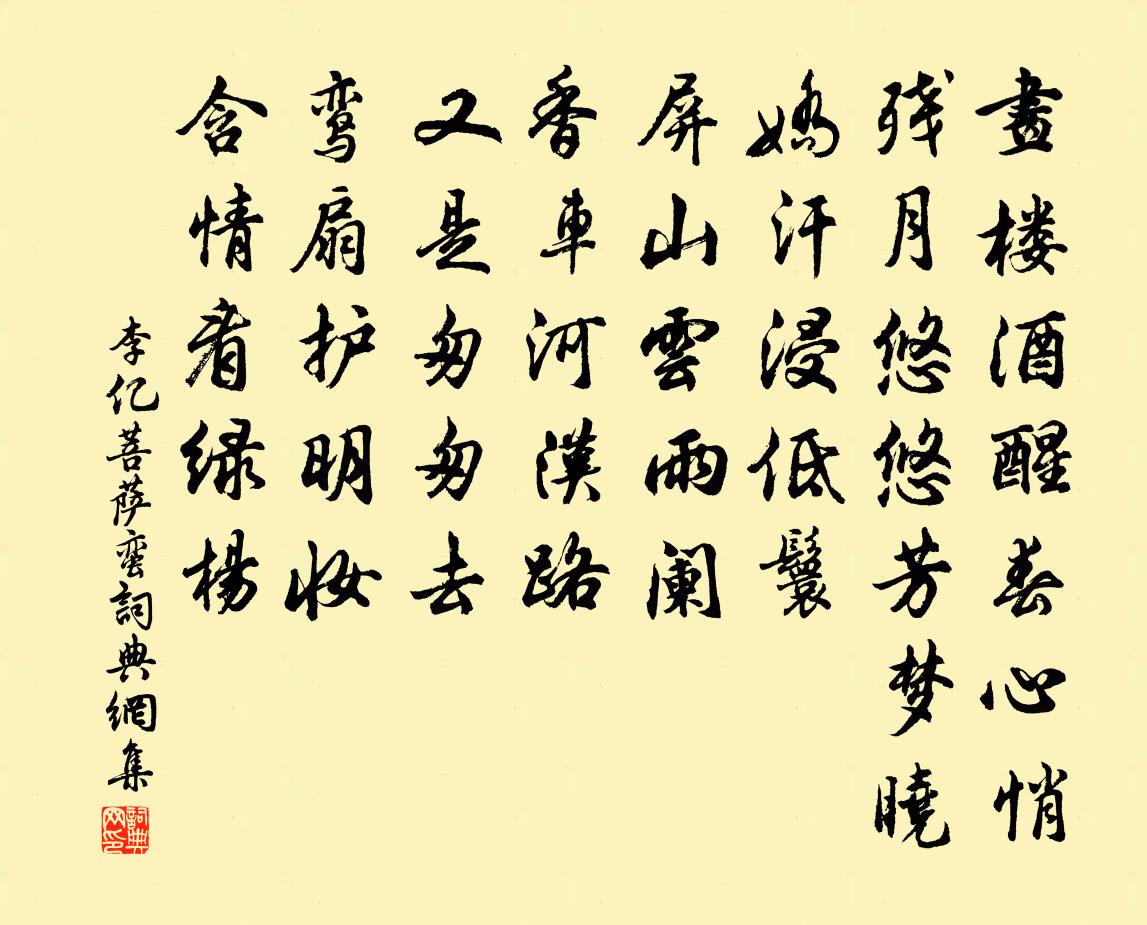 畫楼酒醒春心悄
残月悠悠芳梦曉
嬌汗浸低鬟
屏山雲雨阑
香車河漢路
又是匆匆去
鸾扇护明妆
含情看绿楊
李亿菩萨蛮詞典網集
詞典网印